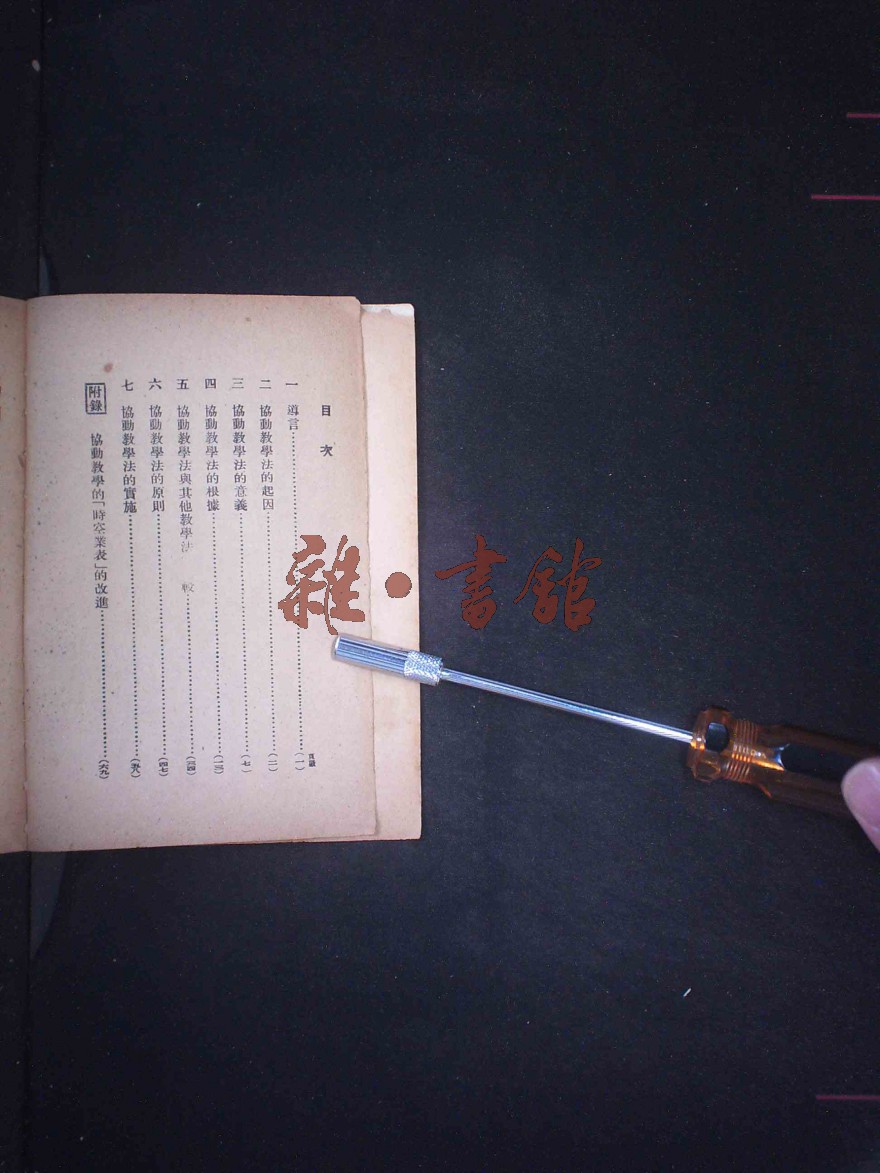 目次
頁數
一 導言……(一)
二 協動教學法的起因……(二)
三 協動教學法的意義……(七)
四 協動教學法的根據……(一三)
五 協動教學法與其他教學法 較……(三四)
六 協動教學法的原則……(四七)
七 協動教學法的實施……(五八)
附錄 協動教學的「時空業表」的改進……(六九)
雜·書館